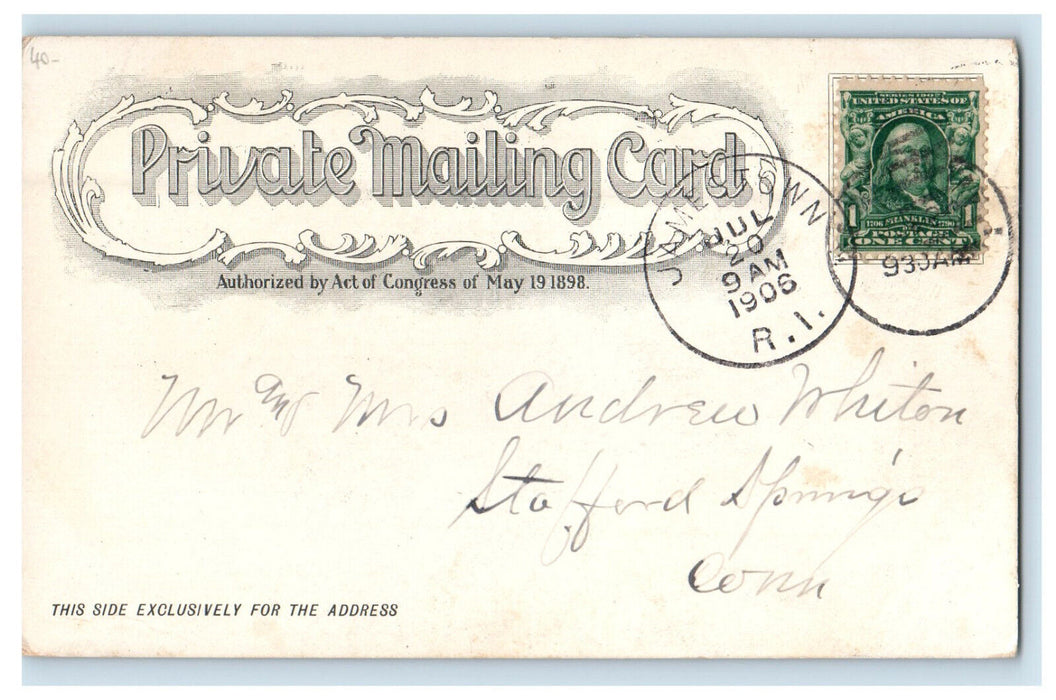 40-
Private Mailing Card
Authorized by Act of Congress of May 19 1898.
SERIES 1902
UNITED STATES OF
AMERICA
1 1706 FRANKLIN 1790 1
POSTAGE
ONE CENT
JAMESTOWN
JUL
20
9 AM
1906
R.I.
930AM
Mr and Mrs Andrew Whiton
Stafford Springs
Conn
THIS SIDE EXCLUSIVELY FOR THE ADDRESS